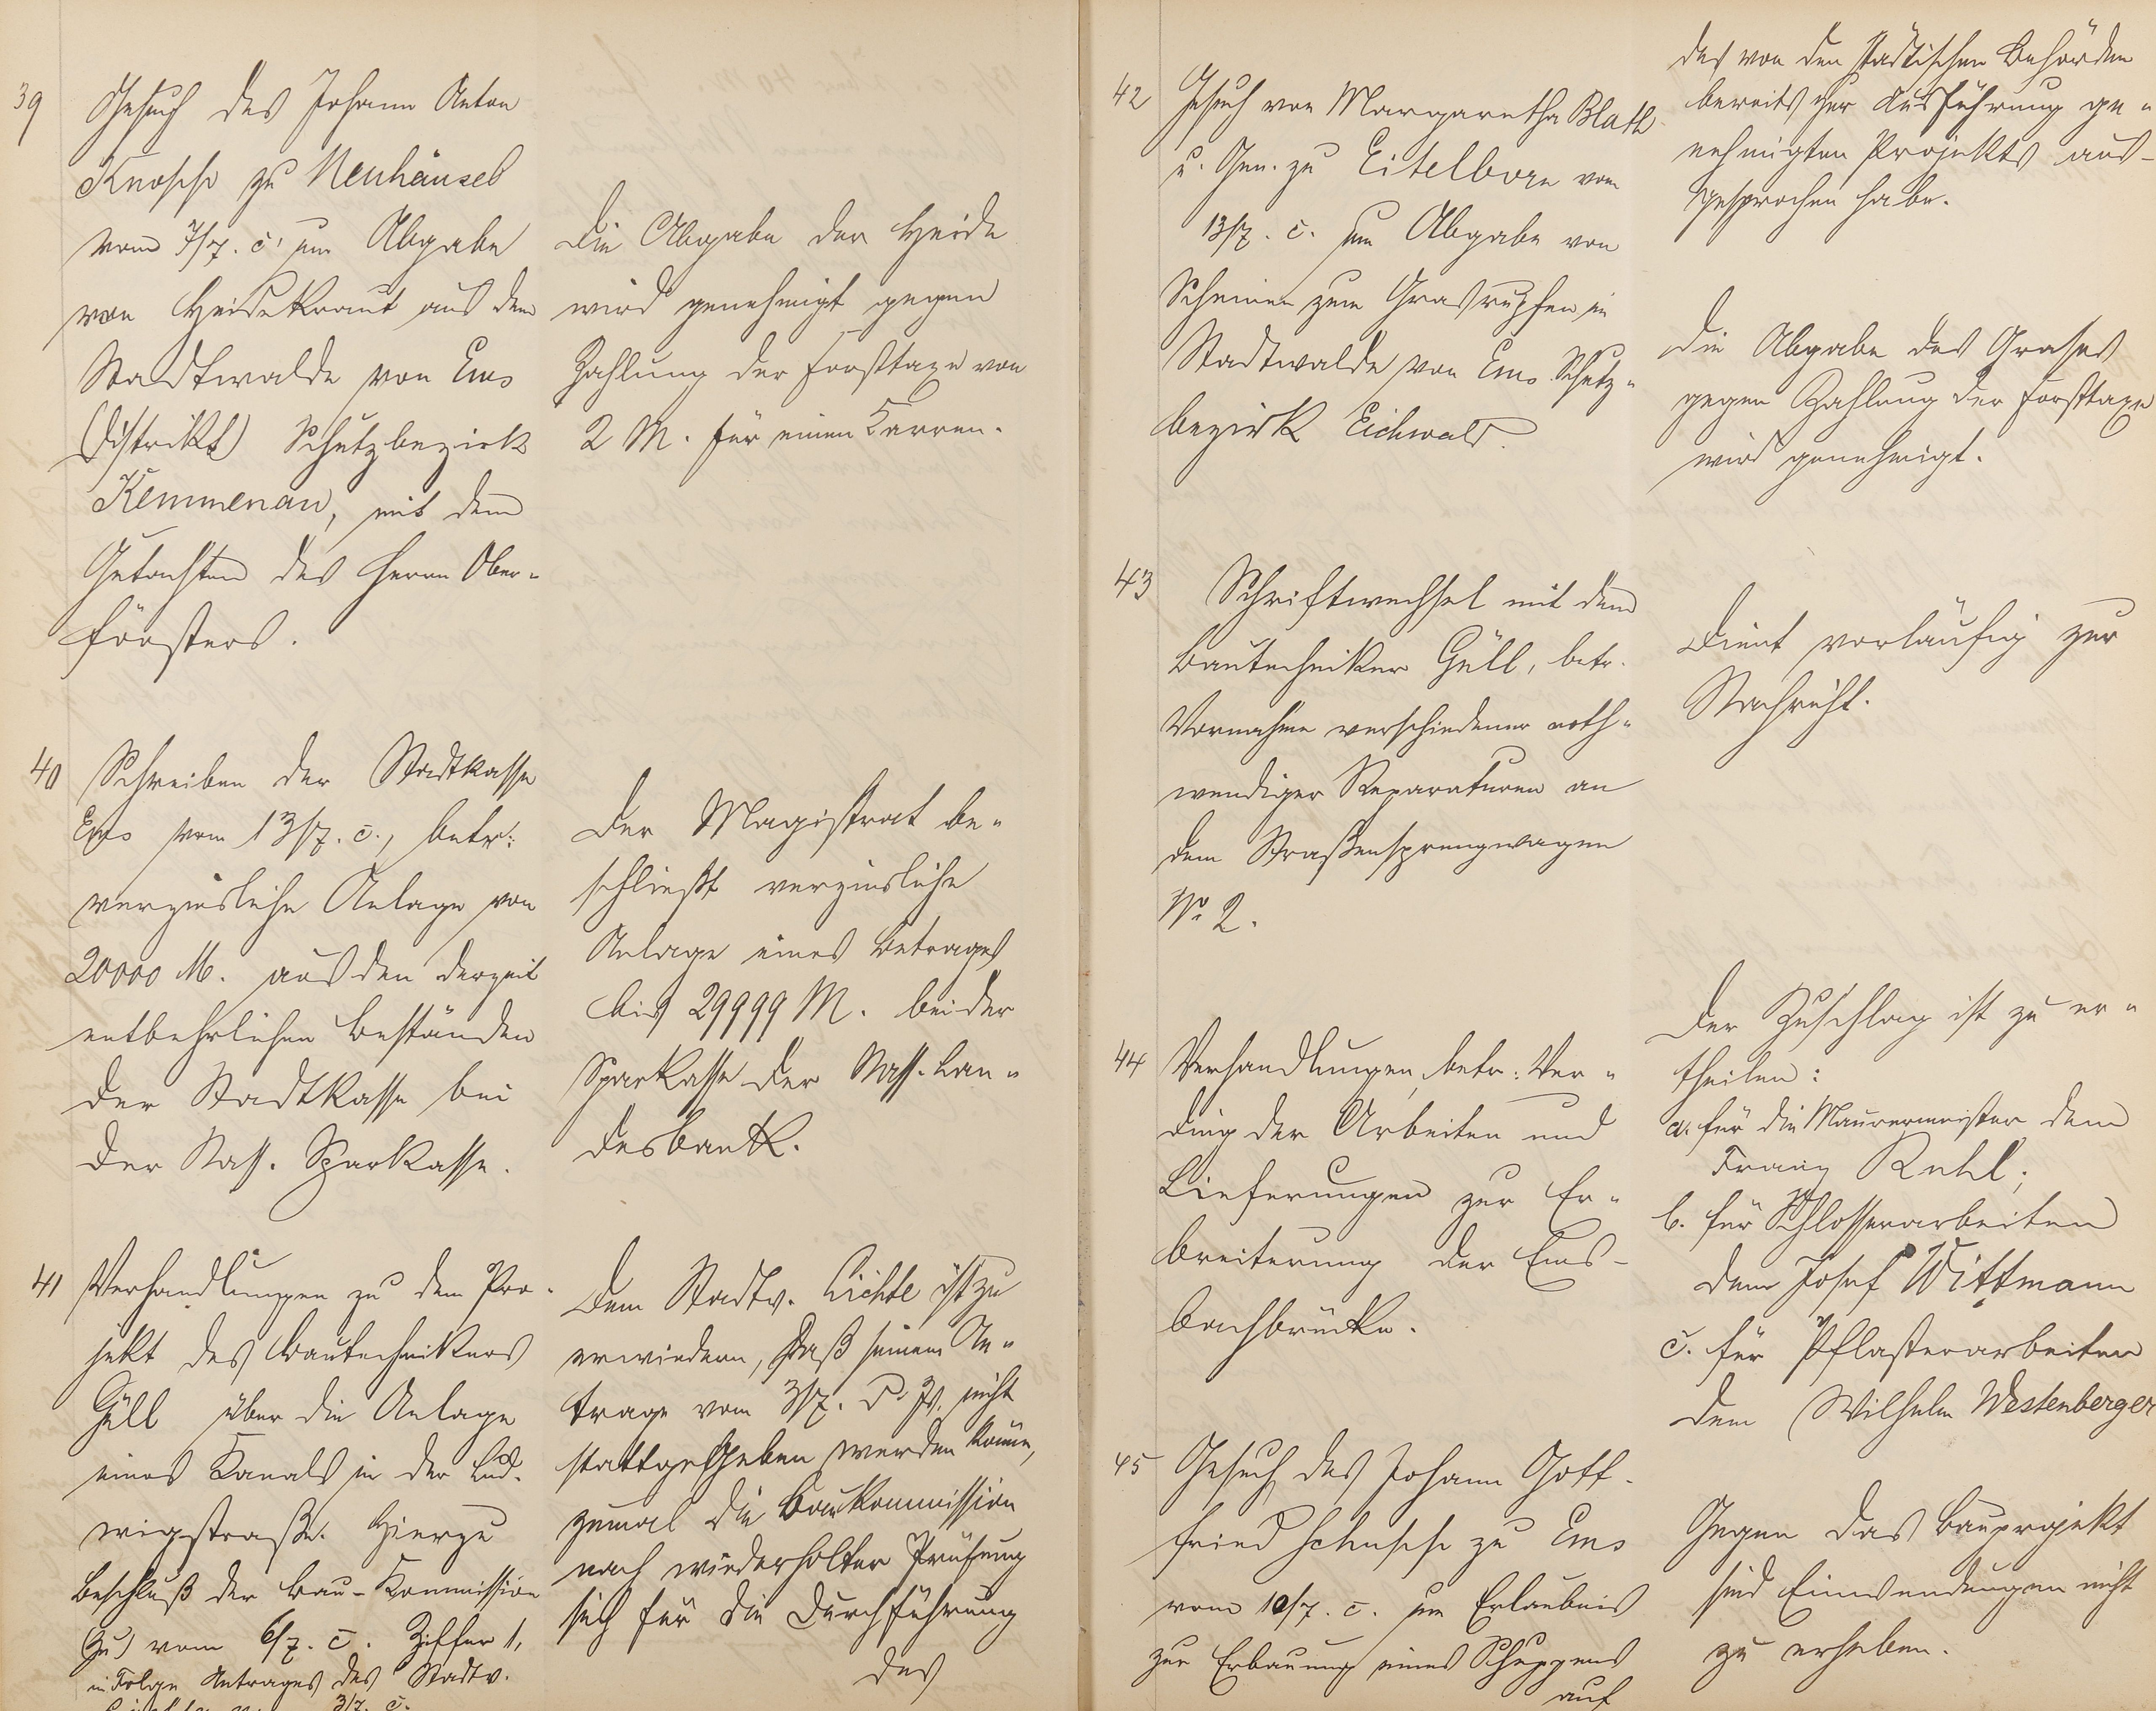 39
Gesuch des Johann Anton
Knoſch zu Neuhäusel
vom 7/7. c. um Abgabe
von Heidekraut aus dem
Stadtwalde von Ems
(Distrikt) Schutzbezirk
Kemmenau, mit dem
Gutachten des Herrn Ober-
försters.
Die Abgabe der Heide
wird genehmigt gegen
Zahlung der Forsttaxe von
2 M. für einen Karren.
40
Schreiben der Stadtkasse
Ems vom 13/7. c., betr:
verzinsliche Anlage von
20000 M. aus den derzeit
entbehrlichen Beständen
der Stadtkasse bei
der Nass. Sparkasse.
Der Magistrat be-
schließt verzinsliche
Anlage eines Betrages
bis 29999 M. bei der
Sparkasse der Nass. Lan-
desbank.
41
Verhandlungen zu dem Pro-
jekt des Bautechnikers
Güll über die Anlage
eines Kanals in der Lud-
wigstraße. Hierzu
Beschluß der Bau-Kommission
(zu) vom 6/7. c. Ziffer 1,
in Folge Antrages des Stadtv.
3/7. c.
Dem Stadtv. Lichte ist zu
erwiedern, daß seinem An-
trage vom 3/7. d. Js. nicht
stattgegeben werden könne,
zumal die Baukommission
nach wiederholter Prüfung
sich für die Durchführung
des
42
Gesuch von Margaretha Blath
u. Gen. zu Eitelborn vom
13/7. c. um Abgabe von
Scheinen zum Grasrupfen im
Stadtwalde von Ems Schutz-
bezirk Eichwald.
des von den städtischen Behörden
bereits zur Ausführung ge-
nehmigten Projekts aus-
gesprochen habe.
Die Abgabe des Grases
gegen Zahlung der Forsttaxe
wird genehmigt.
43
Schriftwechsel mit dem
Bautechniker Güll, betr.
Vornahme verschiedener noth-
wendiger Reparaturen an
dem Straßensprengwagen
No 2.
Dient vorläufig zur
Nachricht.
44
Verhandlungen, betr: Ver-
ding der Arbeiten und
Lieferungen zur Er-
breiterung der Ems-
bachbrücke.
Der Zuschlag ist zu er-
theilen:
a. für die Maurermeister dem
Franz Ruhl;
b. für Schlosserarbeiten
dem Josef Wittmann
c. für Pflasterarbeiten
dem Wilhelm Westenberger
45
Gesuch des Johann Gott-
fried zu Ems
vom 10/7. c. um Erlaubnis
zur Erbauung eines Schuppens
auf
Gegen das Bauprojekt
sind Einwendungen nicht
zu erheben.